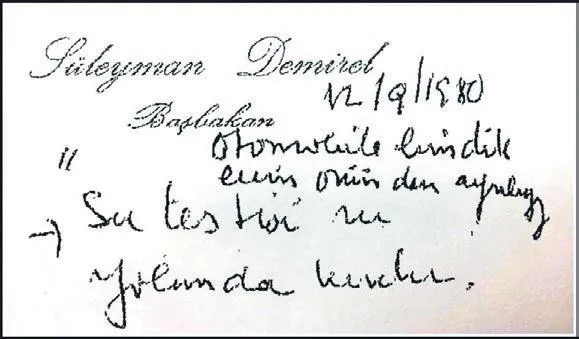 Süleyman Demirel
Başbakan
12/9/1980
Otomobile bindik
evin önünden ayrılıyoruz
"
→ Su testisi su
yolunda kırılır.